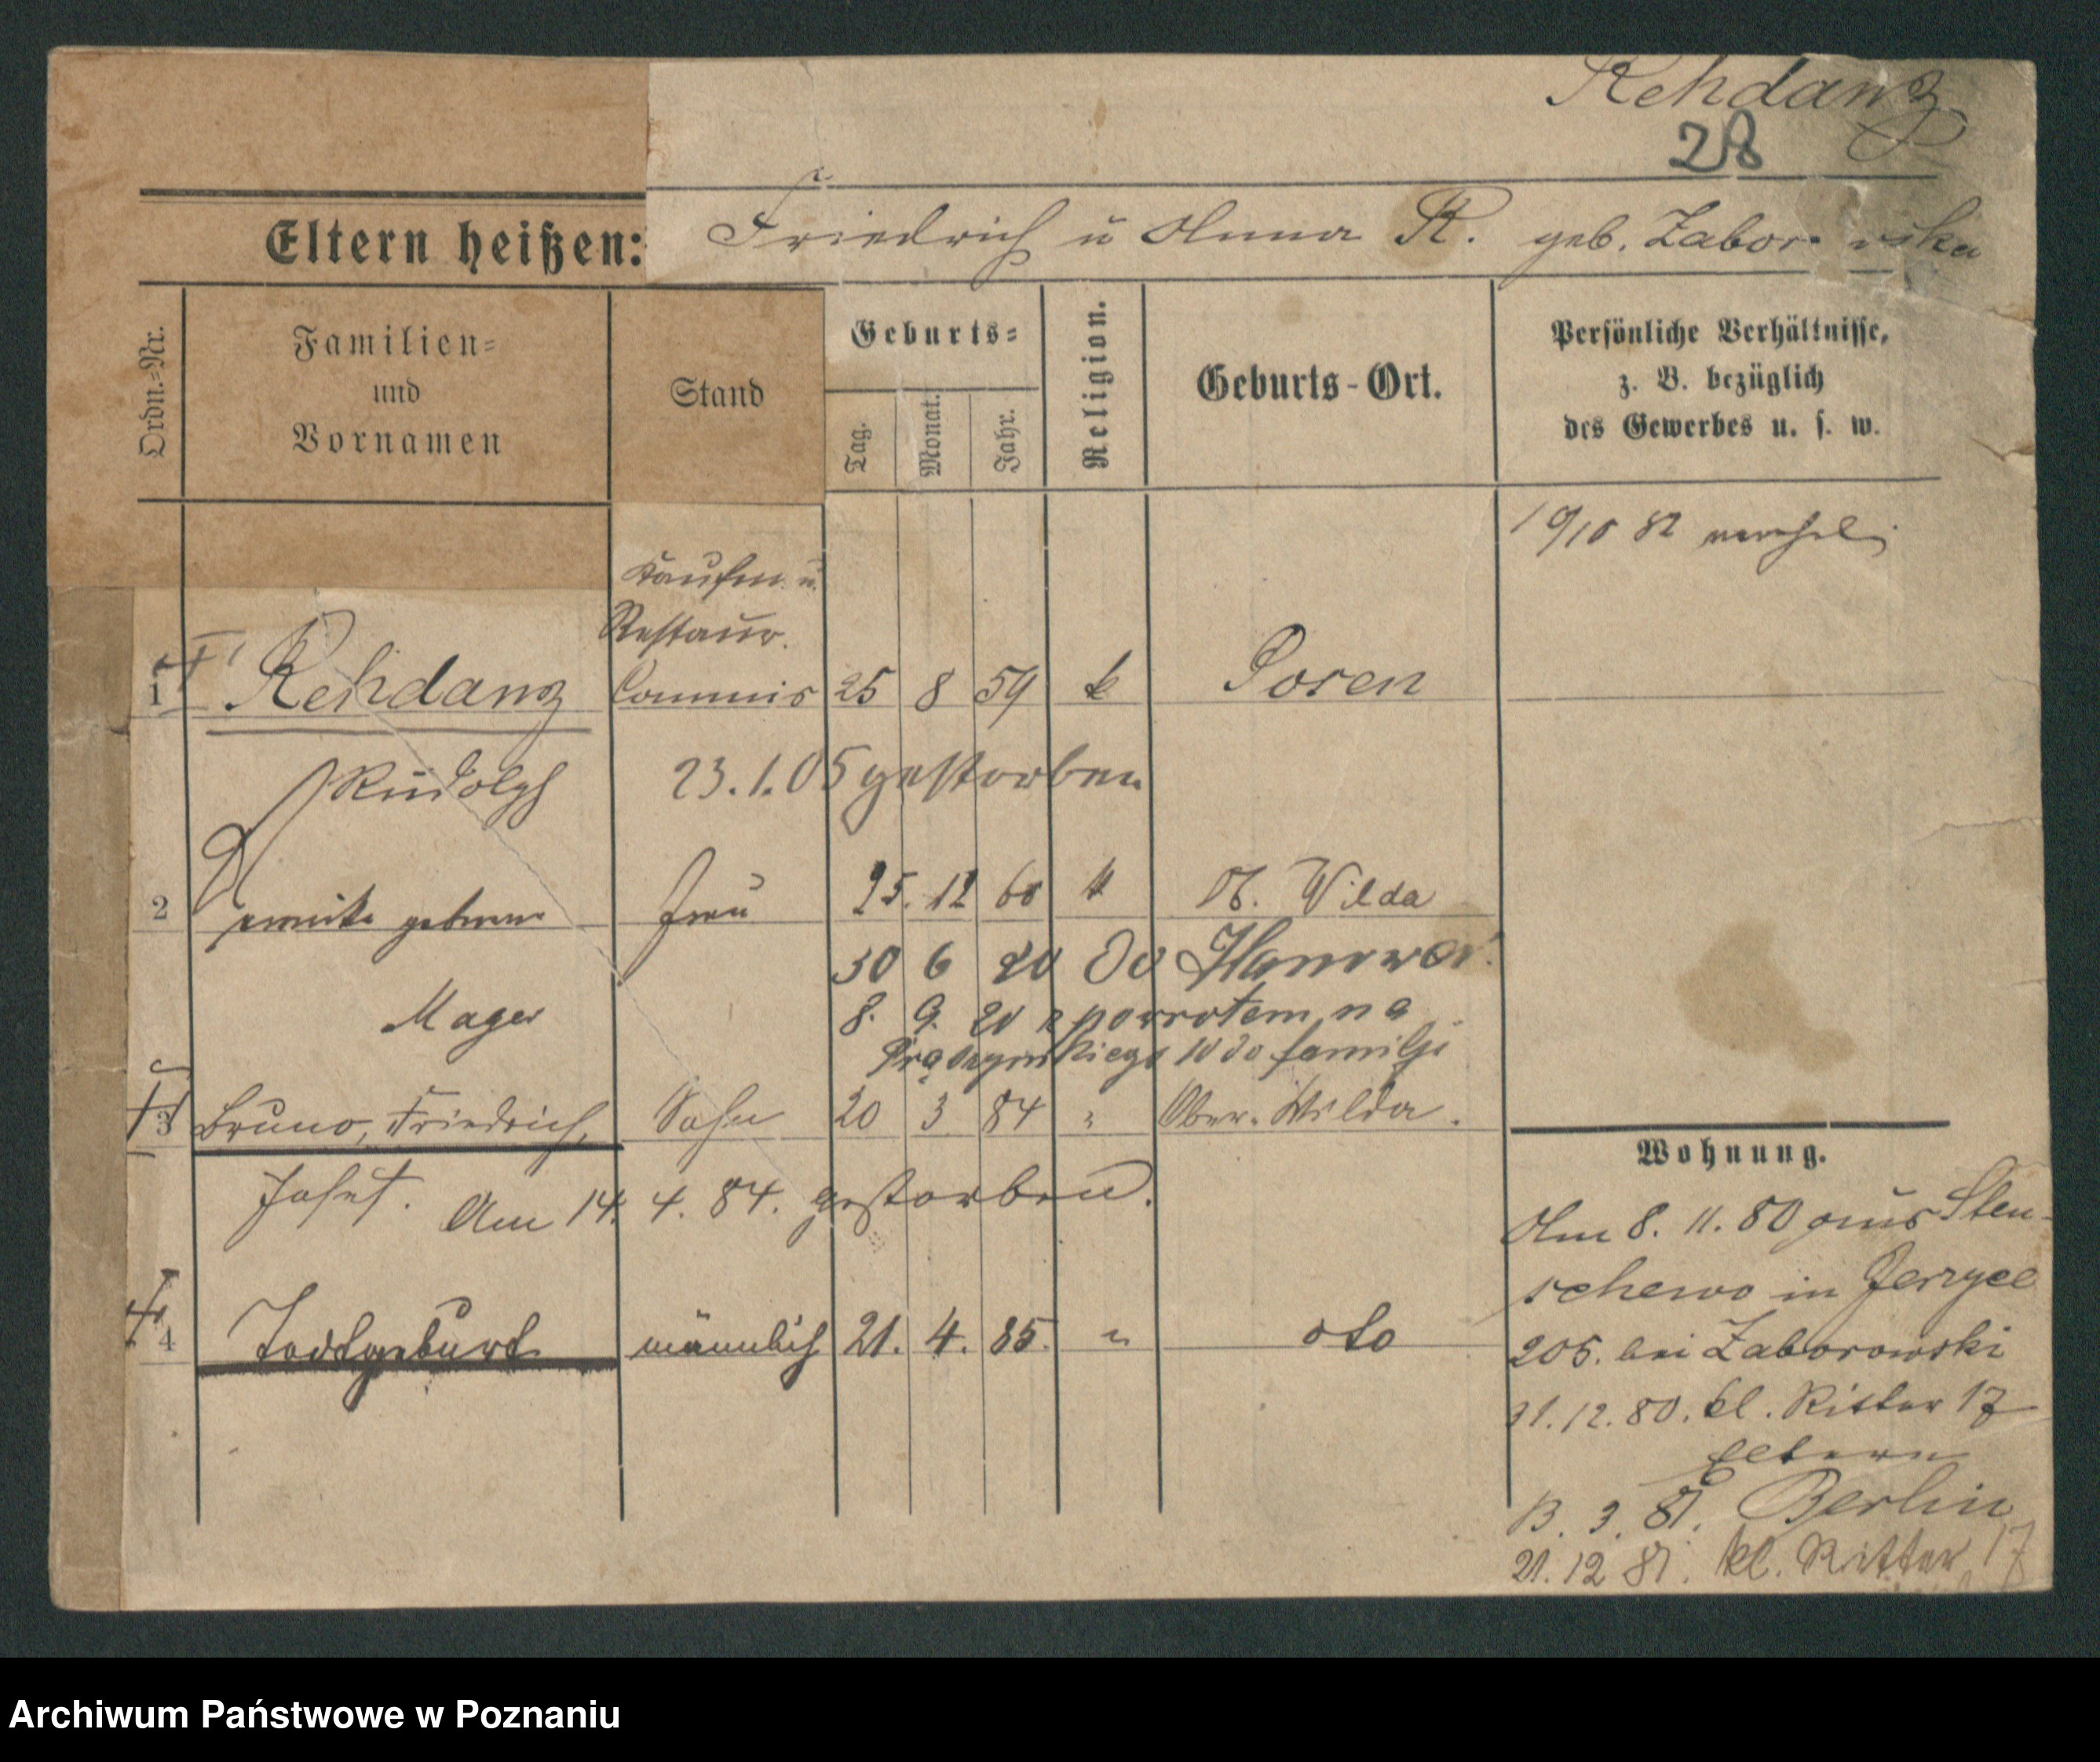 Rehdanz
28
Eltern heißen: Friedrich u Anna R. geb. Zabor
Ordn.=Nr.
Familien=
und
Vornamen
Stand
Geburts=
Tag.
Monat.
Jahr.
Religion.
Geburts-Ort.
Persönliche Verhältnisse,
z. B. bezüglich
des Gewerbes u. s. w.
19/10 82 verehel
Kaufm. u.
Restaur.
1 Rehdanz Commis 25 8 59 k Posen
Rudolph 23.1.05 gestorben
2 geborene Frau 25. 12 60 k O. Wilda
30 6 20 Do Hanower
Mager 8. 9. 20 z powrotem na
Prądzyńskiego 10 do familji
3 Bruno, Friedrich, Sohn 20 3 84 " Ober-Wilda.
Josef. Am 14. 4. 84. gestorben.
4 Todtgeburt männlich 21. 4. 85. " oto
Wohnung.
Am 8. 11. 80 aus Sten-
schewo in Jerzyce
205. bei Zaborowski
31.12.80. kl. Ritter 17
Eltern
13. 3. 81. Berlin
21.12 81. kl. Ritter 17
Archiwum Państwowe w Poznaniu